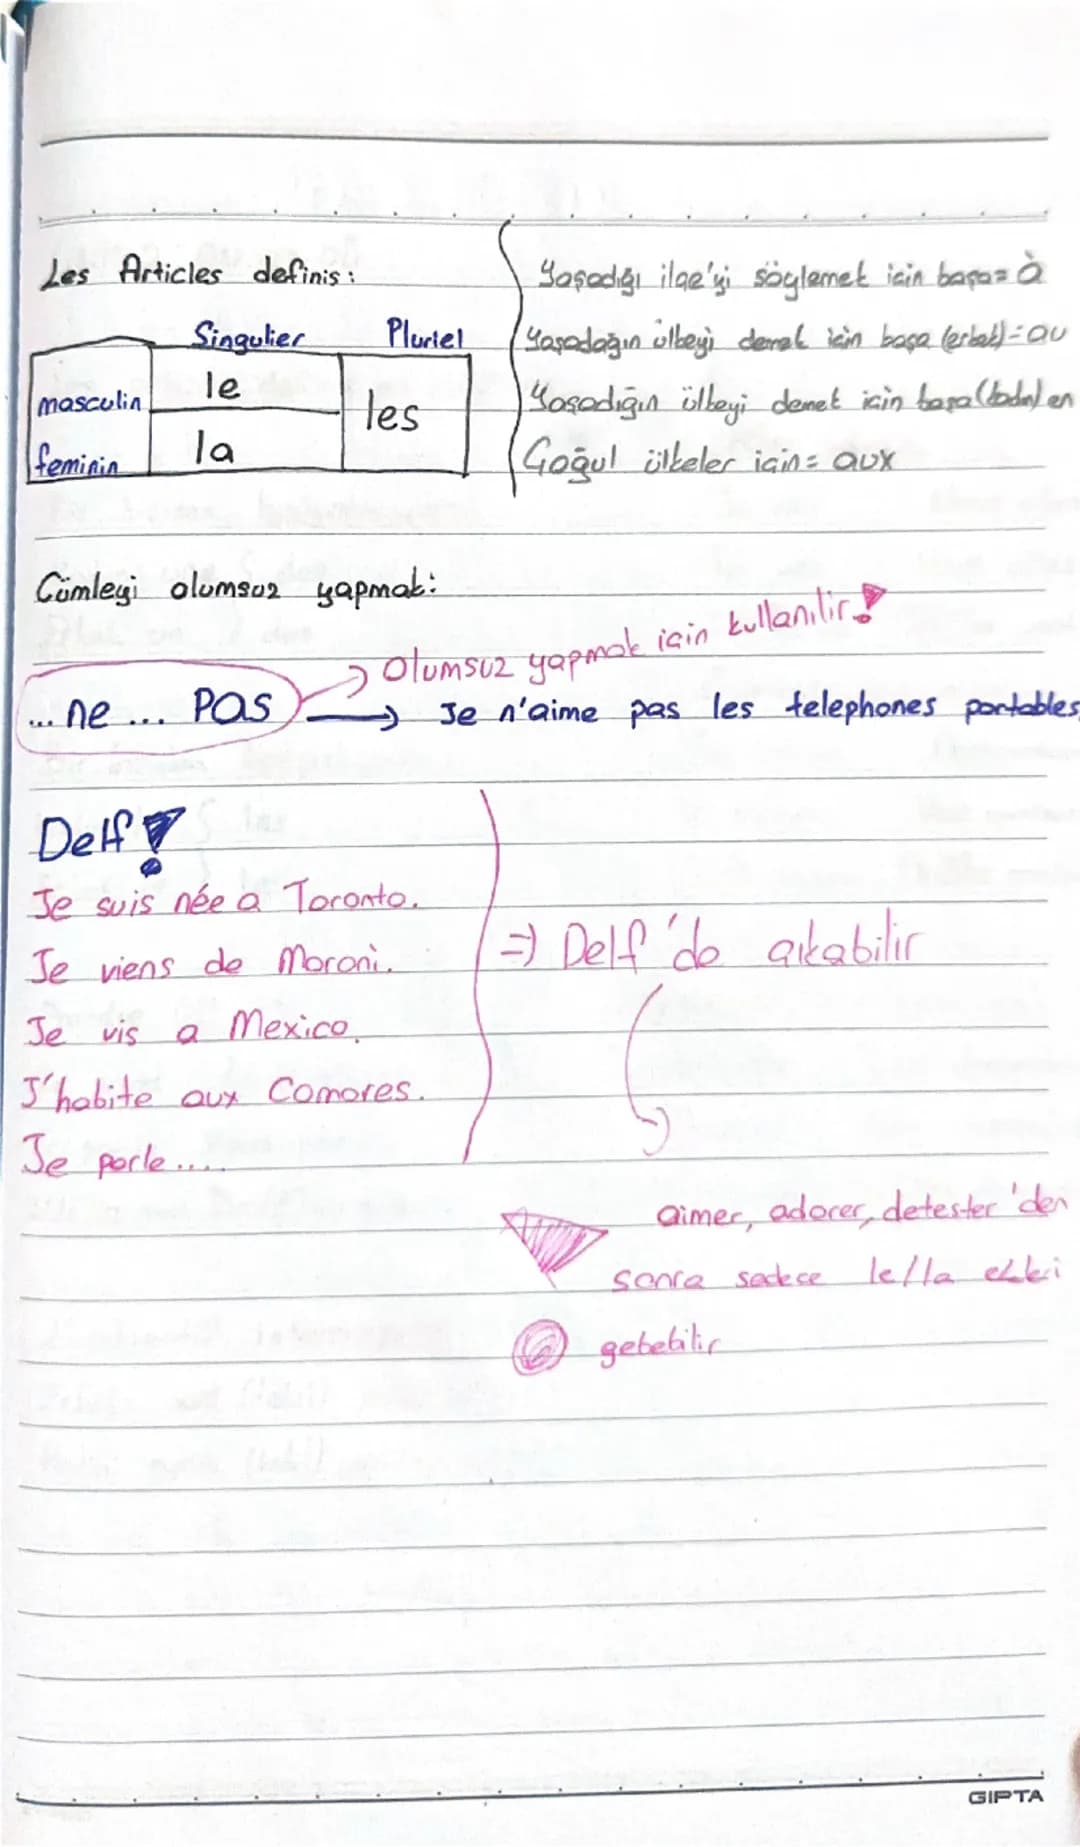 Les Articles definis:
Singulier Pluriel
masculin le les
feminin la
Yaşadığı ilçe'yi söylemek için başa= à
Yaşadağın ülkeyi demek için başa (erkek)= au
Yaşadığın ülkeyi demek için başa (kadın) en
Çoğul ülkeler için= aux
Cümleyi olumsuz yapmak:
Olumsuz yapmak için kullanılır!
... ne ... pas → Je n'aime pas les telephones portables
Delf!
Je suis née a Toronto.
Je viens de Moroni.
Je vis a Mexico.
J'habite aux Comores.
Je parle ....
=) Delf'de çıkabilir
aimer, adorer, detester'den
sonra sadece le/la
gelebilir
GIPTA